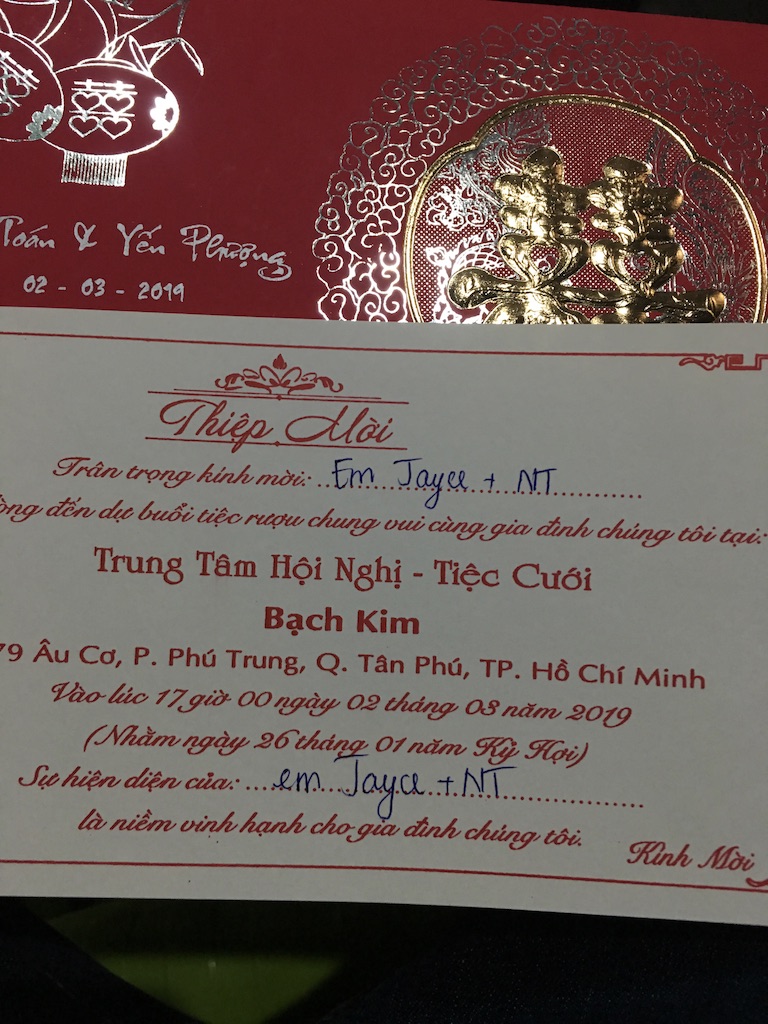 Toán & Yến Phượng
02 - 03 - 2019
Thiệp Mời
Trân trọng kính mời: Em Jayce + NT
đến dự buổi tiệc rượu chung vui cùng gia đình chúng tôi tại:
Trung Tâm Hội Nghị - Tiệc Cưới
Bạch Kim
79 Âu Cơ, P. Phú Trung, Q. Tân Phú, TP. Hồ Chí Minh
Vào lúc 17 giờ 00 ngày 02 tháng 03 năm 2019
(Nhằm ngày 26 tháng 01 năm Kỷ Hợi)
Sự hiện diện của: em Jayce + NT
là niềm vinh hạnh cho gia đình chúng tôi.
Kính Mời